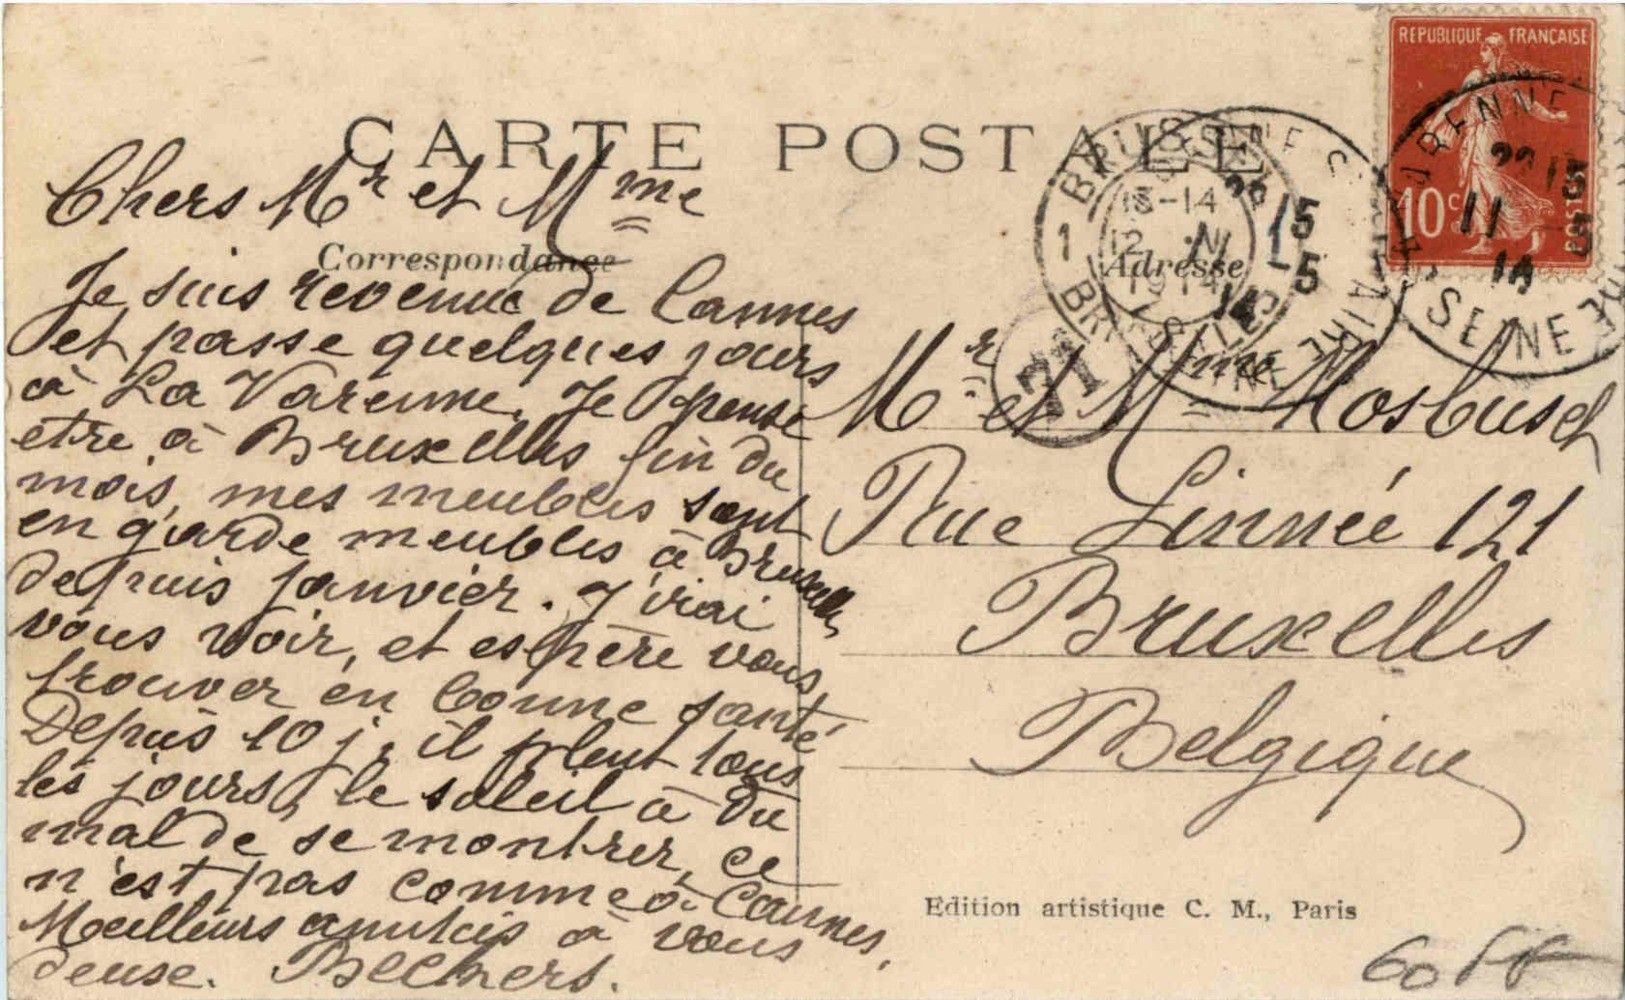 CARTE POSTALE
Chers Mr et Mme
Correspondance
Je suis revenue de Cannes
et passe quelques jours
à La Varenne. Je pense
etre à Bruxelles fin du
mois, mes meubles sont
en garde meubles à Bruxelles
depuis janvier. J'irai
vous voir, et espère vous
trouver en bonne santé
Depuis 10 j. il pleut tous
les jours, le soleil à du
mal de se montrer, ce
n'est pas comme à Cannes,
Meilleurs amitiés à vous
deuse.
REPUBLIQUE FRANÇAISE
10c
POSTES
SEINE
22 15
11 5
14
BRUSSEL
13-14
12 VI
1914
1
1
71
Adresse
Mr et Mme Mosbusch
Rue Linnée 121
Bruxelles
Belgique
Edition artistique C. M., Paris